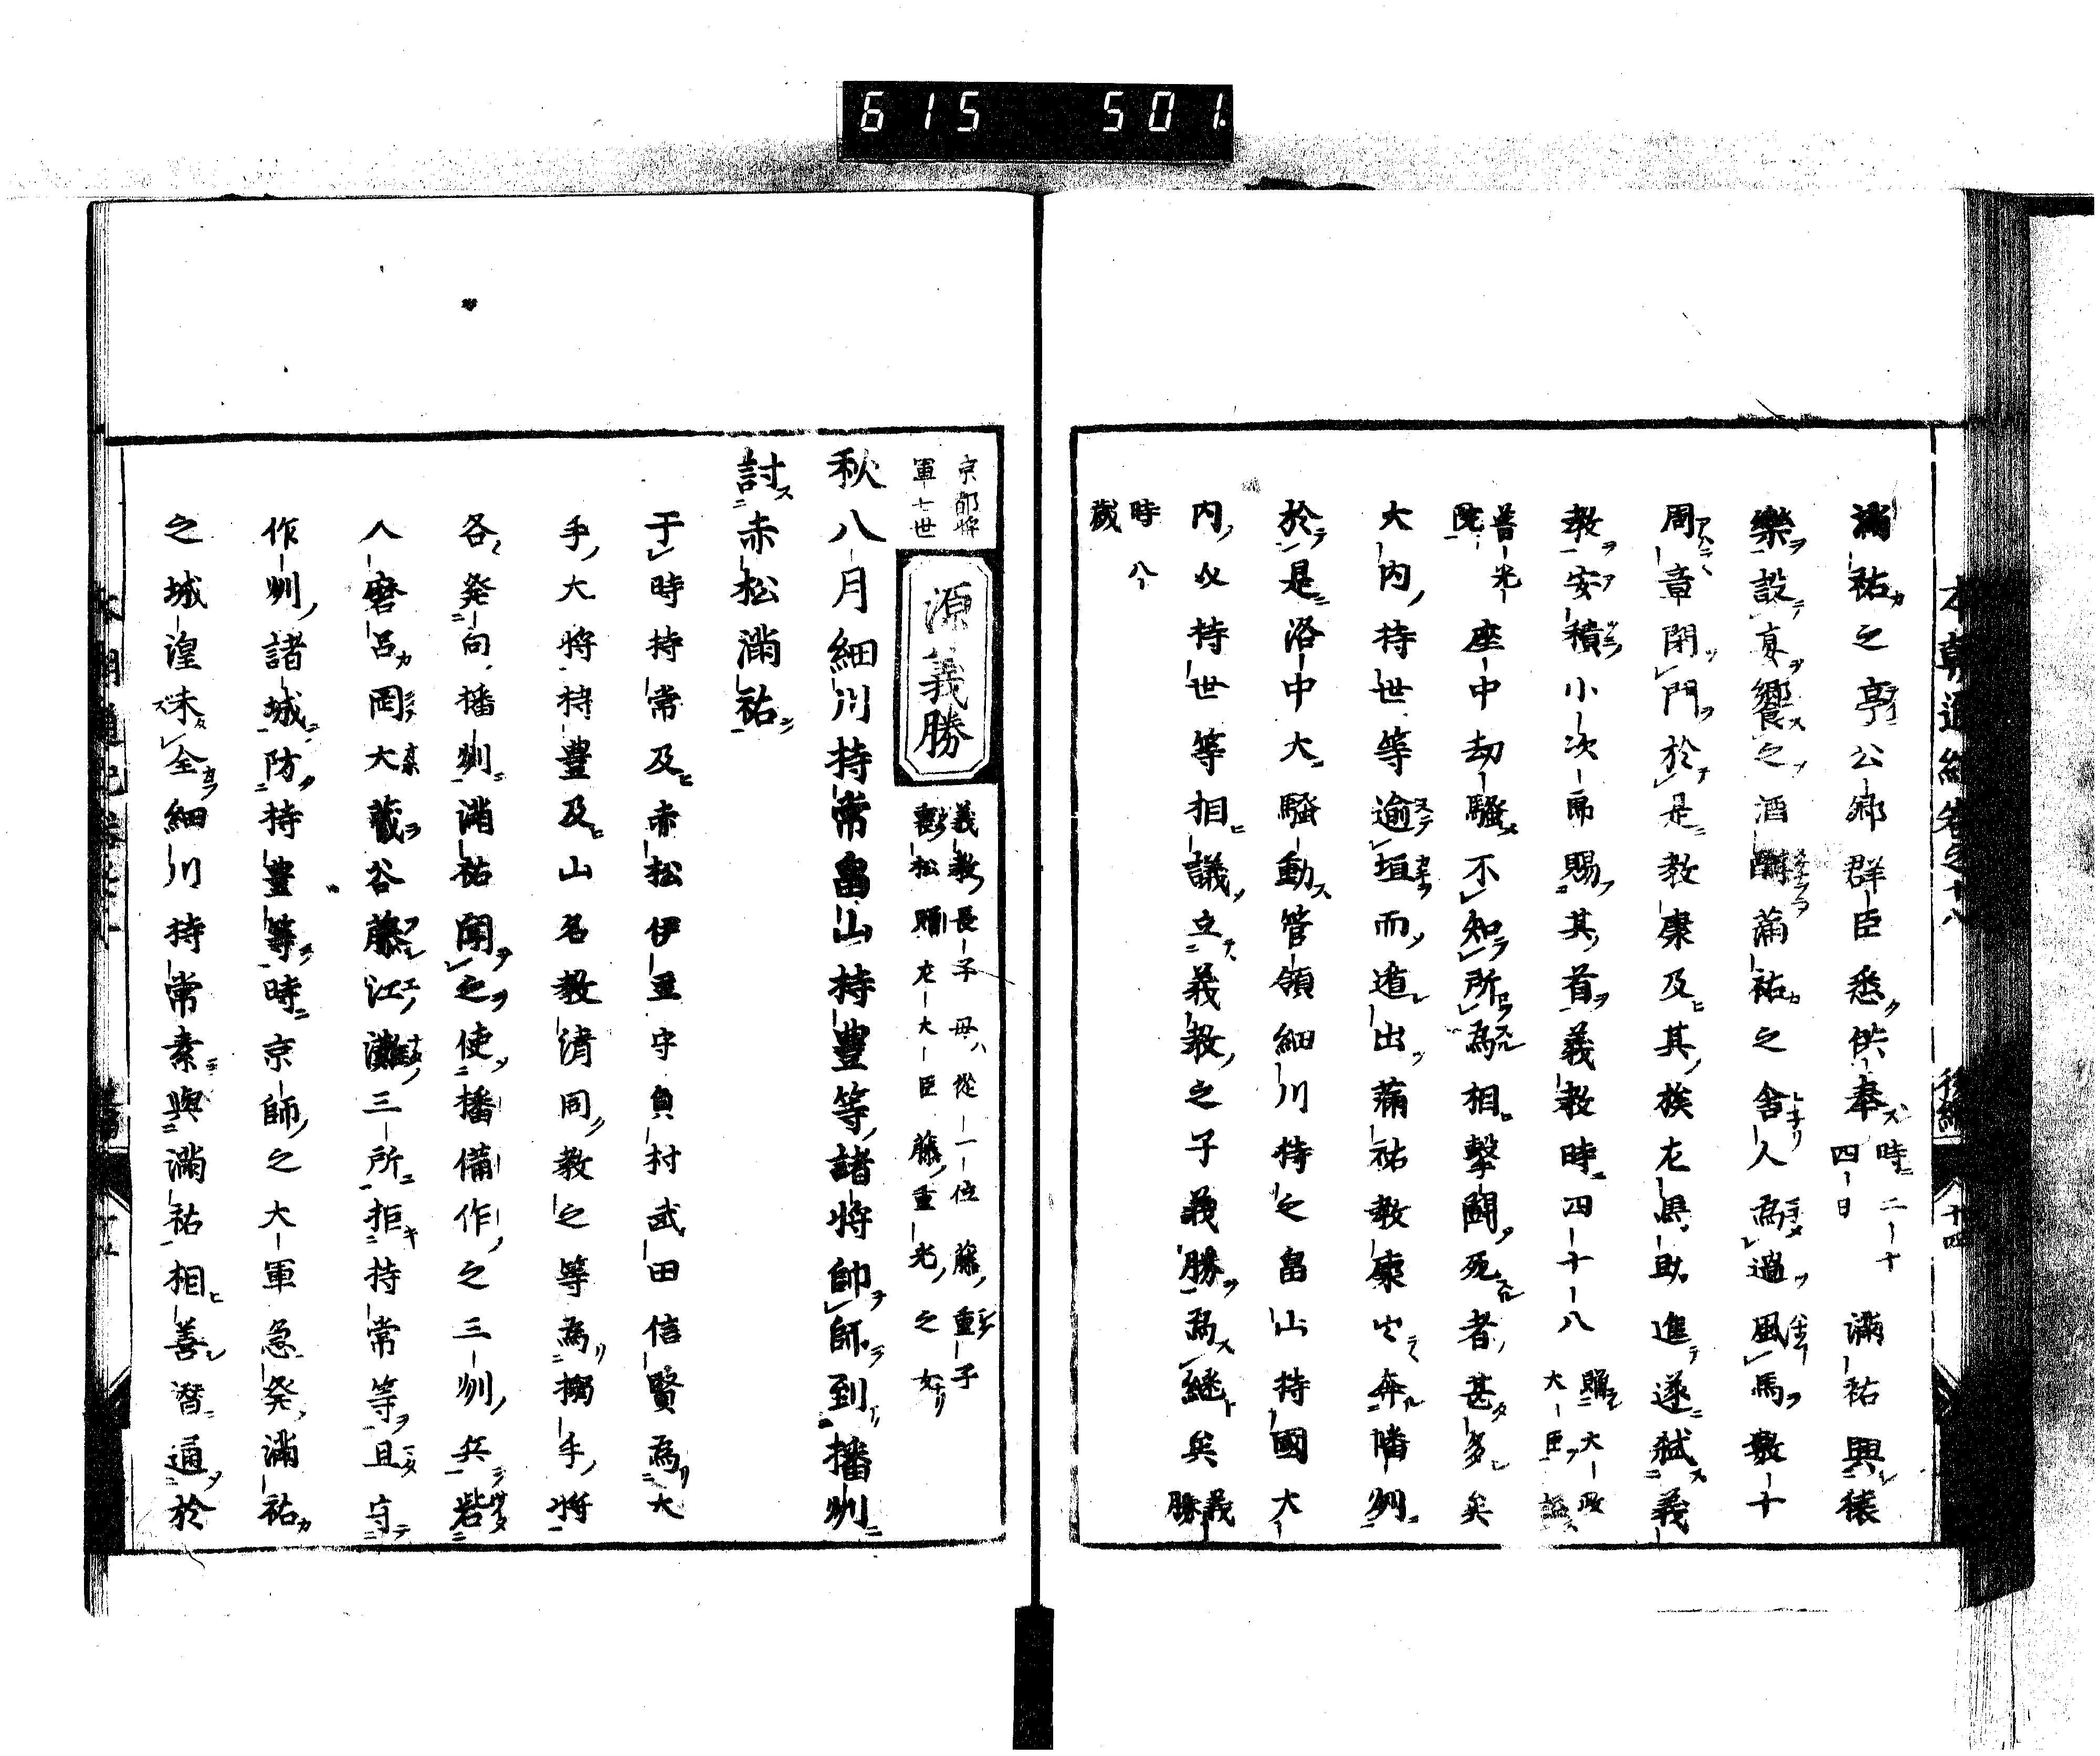 615 501.
本朝通紀卷之十八 後編 十四
滿祐之亭公卿群臣悉供奉時二十四日滿祐興猿
樂設宴饗之酒酣滿祐之舍人為過風馬數十
周章閉門於是教康及其族左馬助進遂弑義
教安積小次郎賜其首義教時四十八贈大政大臣
普光院座中劫騷不知所為相擊鬪死者甚多矣
大内持世等逾垣而遁出滿祐教康出奔播州
於是洛中大騷動管領細川持之畠山持國大
内以持世等相議立義教之子義勝為継矣義勝
時八歲
京都將軍七世
源義勝
義教長子母從一位藤重子
裏松贈左大臣藤重光之女
秋八月細川持常畠山持豊等諸將帥師到播州
討赤松滿祐
于時持常及赤松伊豆守貞村武田信賢為大
手大將持豊及山名教清同教之等為搦手將
各発向播州滿祐聞之使播備作之三州兵砦
人磨呂岡大蔵谷藤江灘三所拒持常等且守
作州諸城防持豊等時京師之大軍急発滿祐
之城湟未全細川持常素與滿祐相善潛通於